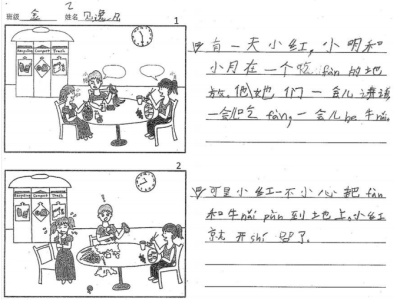 班级 金 乙 姓名
1
Recycling Compost Trash
有一天小红,小明和
小月在一个吃 fàn 的地
放。他她们一会儿讲话
一会儿吃 fàn,一会儿 he 牛 nǎi。
2
Recycling Compost Trash
可是小红一不小心把 fàn
和牛 nǎi pùn 到土地上。小红
就开 shǐ 哭了。